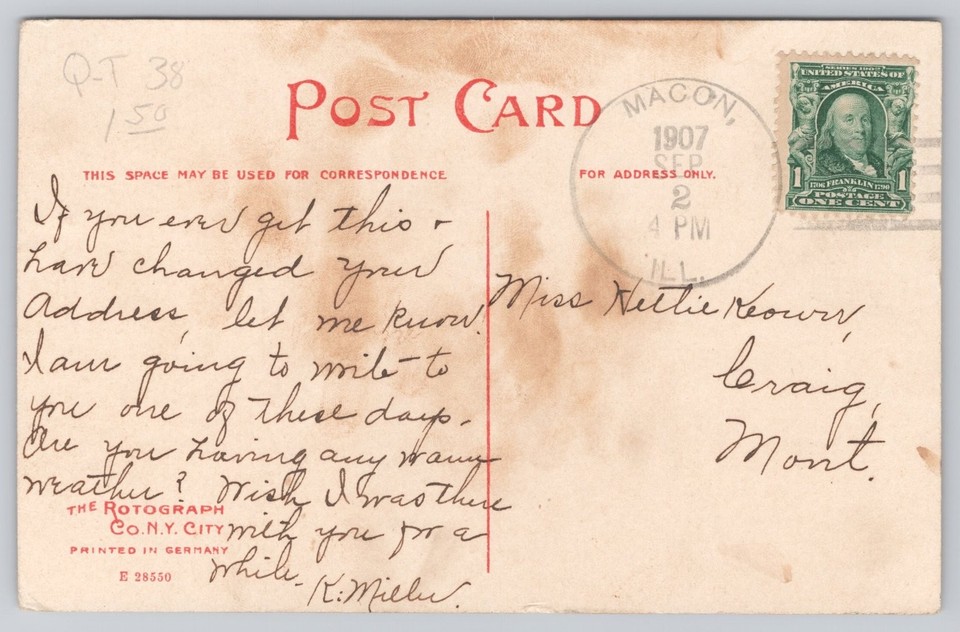 Q-T 38
1 50
POST CARD
MACON,
1907
SEP
2
4 PM
ILL.
SERIES 1902
UNITED STATES OF
AMERICA
1 1
1706 FRANKLIN 1790
POSTAGE
ONE CENT
THIS SPACE MAY BE USED FOR CORRESPONDENCE
FOR ADDRESS ONLY.
If you ever get this &
have changed your
Address, let me know.
I am going to write to
you one of these days.
Are you having any warm
weather? Wish I was there
with you for a
while.
K. Miller.
Miss Nettie Keown,
Craig,
Mont.
THE ROTOGRAPH
CO. N.Y. CITY
PRINTED IN GERMANY
E 28550